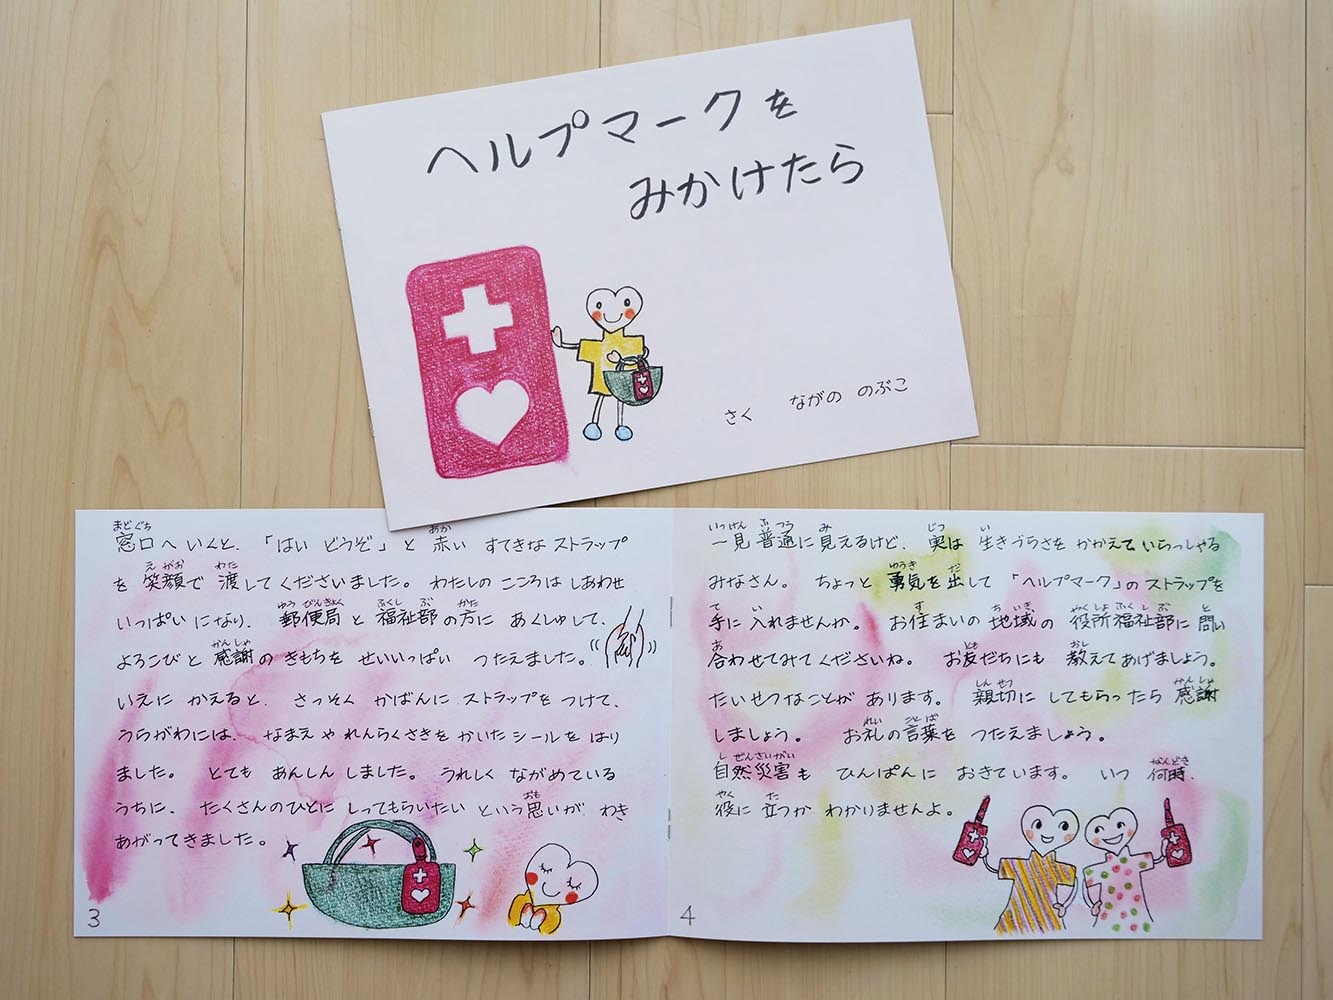 ヘルプマークを
みかけたら
さく ながの のぶこ
窓口へ いくと、「はい どうぞ」と 赤い すてきな ストラップ
を 笑顔で 渡してくださいました。 わたしの こころは しあわせ
いっぱいになり、 郵便局と 福祉部の方に あくしゅして、
よろこびと 感謝の きもちを せいいっぱい つたえました。
いえに かえると、 さっそく かばんに ストラップを つけて、
うらがわには、 なまえや れんらくさきを かいた シールを はり
ました。 とても あんしん しました。 うれしく ながめている
うちに、 たくさんのひとに しってもらいたい という思いが わき
あがってきました。
3
一見 普通に 見えるけど、 実は 生きづらさを かかえて いらっしゃる
みなさん。 ちょっと 勇気を 出して 「ヘルプマーク」の ストラップを
手に 入れませんか。 お住まいの 地域の 役所福祉部に 問い
合わせてみてくださいね。 お友だちにも 教えてあげましょう。
たいせつなことが あります。 親切に してもらったら 感謝
しましょう。 お礼の 言葉を つたえましょう。
自然災害も ひんぱんに おきています。 いつ 何時、
役に 立つか わかりませんよ。
4